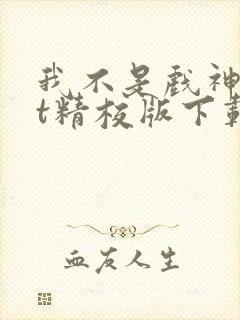 我不是戏神
t精校版下载
血友人生